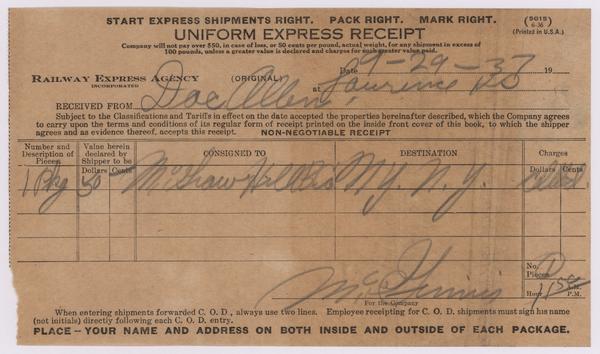 START EXPRESS SHIPMENTS RIGHT. PACK RIGHT. MARK RIGHT.
(5015)
6-36
(Printed in U.S.A.)
UNIFORM EXPRESS RECEIPT
Company will not pay over $50, in case of loss, or 50 cents per pound, actual weight, for any shipment in excess of
100 pounds, unless a greater value is declared and charges for such greater value paid.
RAILWAY EXPRESS AGENCY (ORIGINAL) Date 9-29-37 19
INCORPORATED
at Lawrence Ks
RECEIVED FROM Doc Allen
Subject to the Classifications and Tariffs in effect on the date accepted the properties hereinafter described, which the Company agrees
to carry upon the terms and conditions of its regular form of receipt printed on the inside front cover of this book, to which the shipper
agrees and as evidence thereof, accepts this receipt. NON-NEGOTIABLE RECEIPT
Number and Description of Pieces Value herein declared by Shipper to be CONSIGNED TO DESTINATION Charges
Dollars Cents Dollars Cents
1 Pkg 50 McGraw Hill N.Y. N.Y. Collect
McGinnis
For the Company
No. Pieces 1
Hour 11 50 A.M. P.M.
When entering shipments forwarded C. O. D., always use two lines. Employee receipting for C. O. D. shipments must sign his name
(not initials) directly following each C. O. D. entry.
PLACE—YOUR NAME AND ADDRESS ON BOTH INSIDE AND OUTSIDE OF EACH PACKAGE.